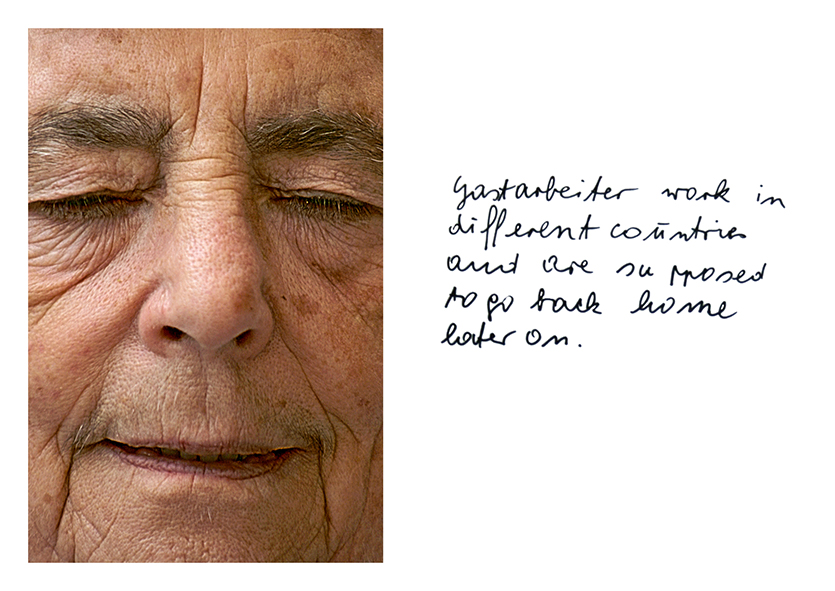 Gastarbeiter work in
different countries
and are supposed
to go back home
later on.